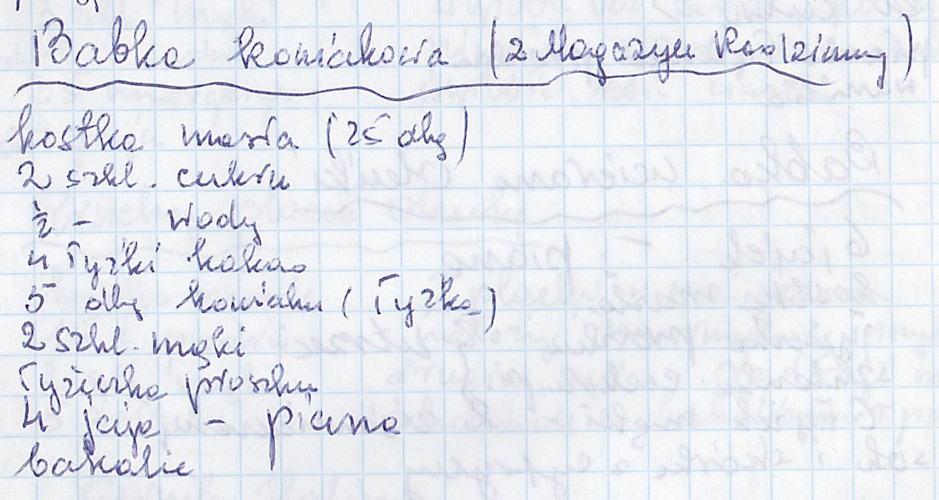 Babka koniakowa (z Magazynu Rodzinnny)
kostka masła (25 dkg)
2 szkl. cukru
½ - wody
4 łyżki kakao
5 dkg koniaku (łyżka)
2 szkl. mąki
łyżeczka proszku
4 jaja - piana
bakalie